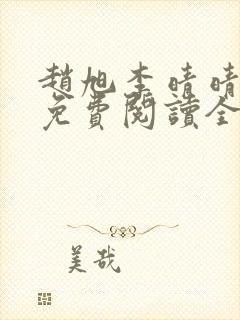 趙旭李晴晴
免費閱讀全
美哉